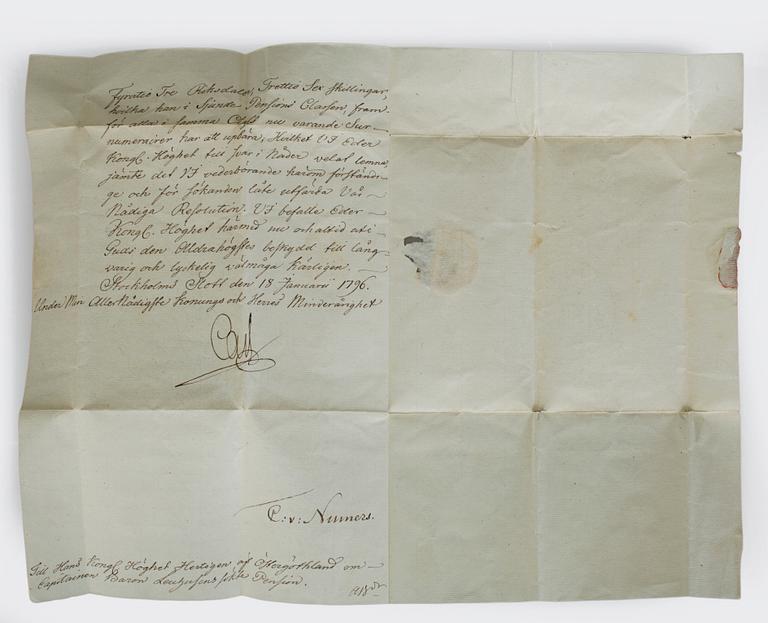 Fyratio Tre Riksdaler, Trettio Sex skillingar
hvilka han i Sjunde Pensions Classen, fram-
för alla i samma Class nu varande Sur-
numerairer har att upbära, Hvilket VI Eder
Kongl. Höghet till svar i Nåder velat lemna,
jämte det VI vederbörande härom förständi-
ge och för sökanden låte utfärda Vår
Nådiga Resolution. VI befalle Eder
Kongl. Höghet härmed nu och altid uti
Guds den Aldrahögstes beskydd till lång-
varig och lyckelig välmåga kärligen.
Stockholms Slott den 18 Januarii 1796.
Under Min Aller Nådigste Konungs och Herres Minderårighet
C: v: Numers.
Till Hans Kongl Höghet Hertigen af Östergöthland om
Capitainen Baron Leuhusens sökte Pension.